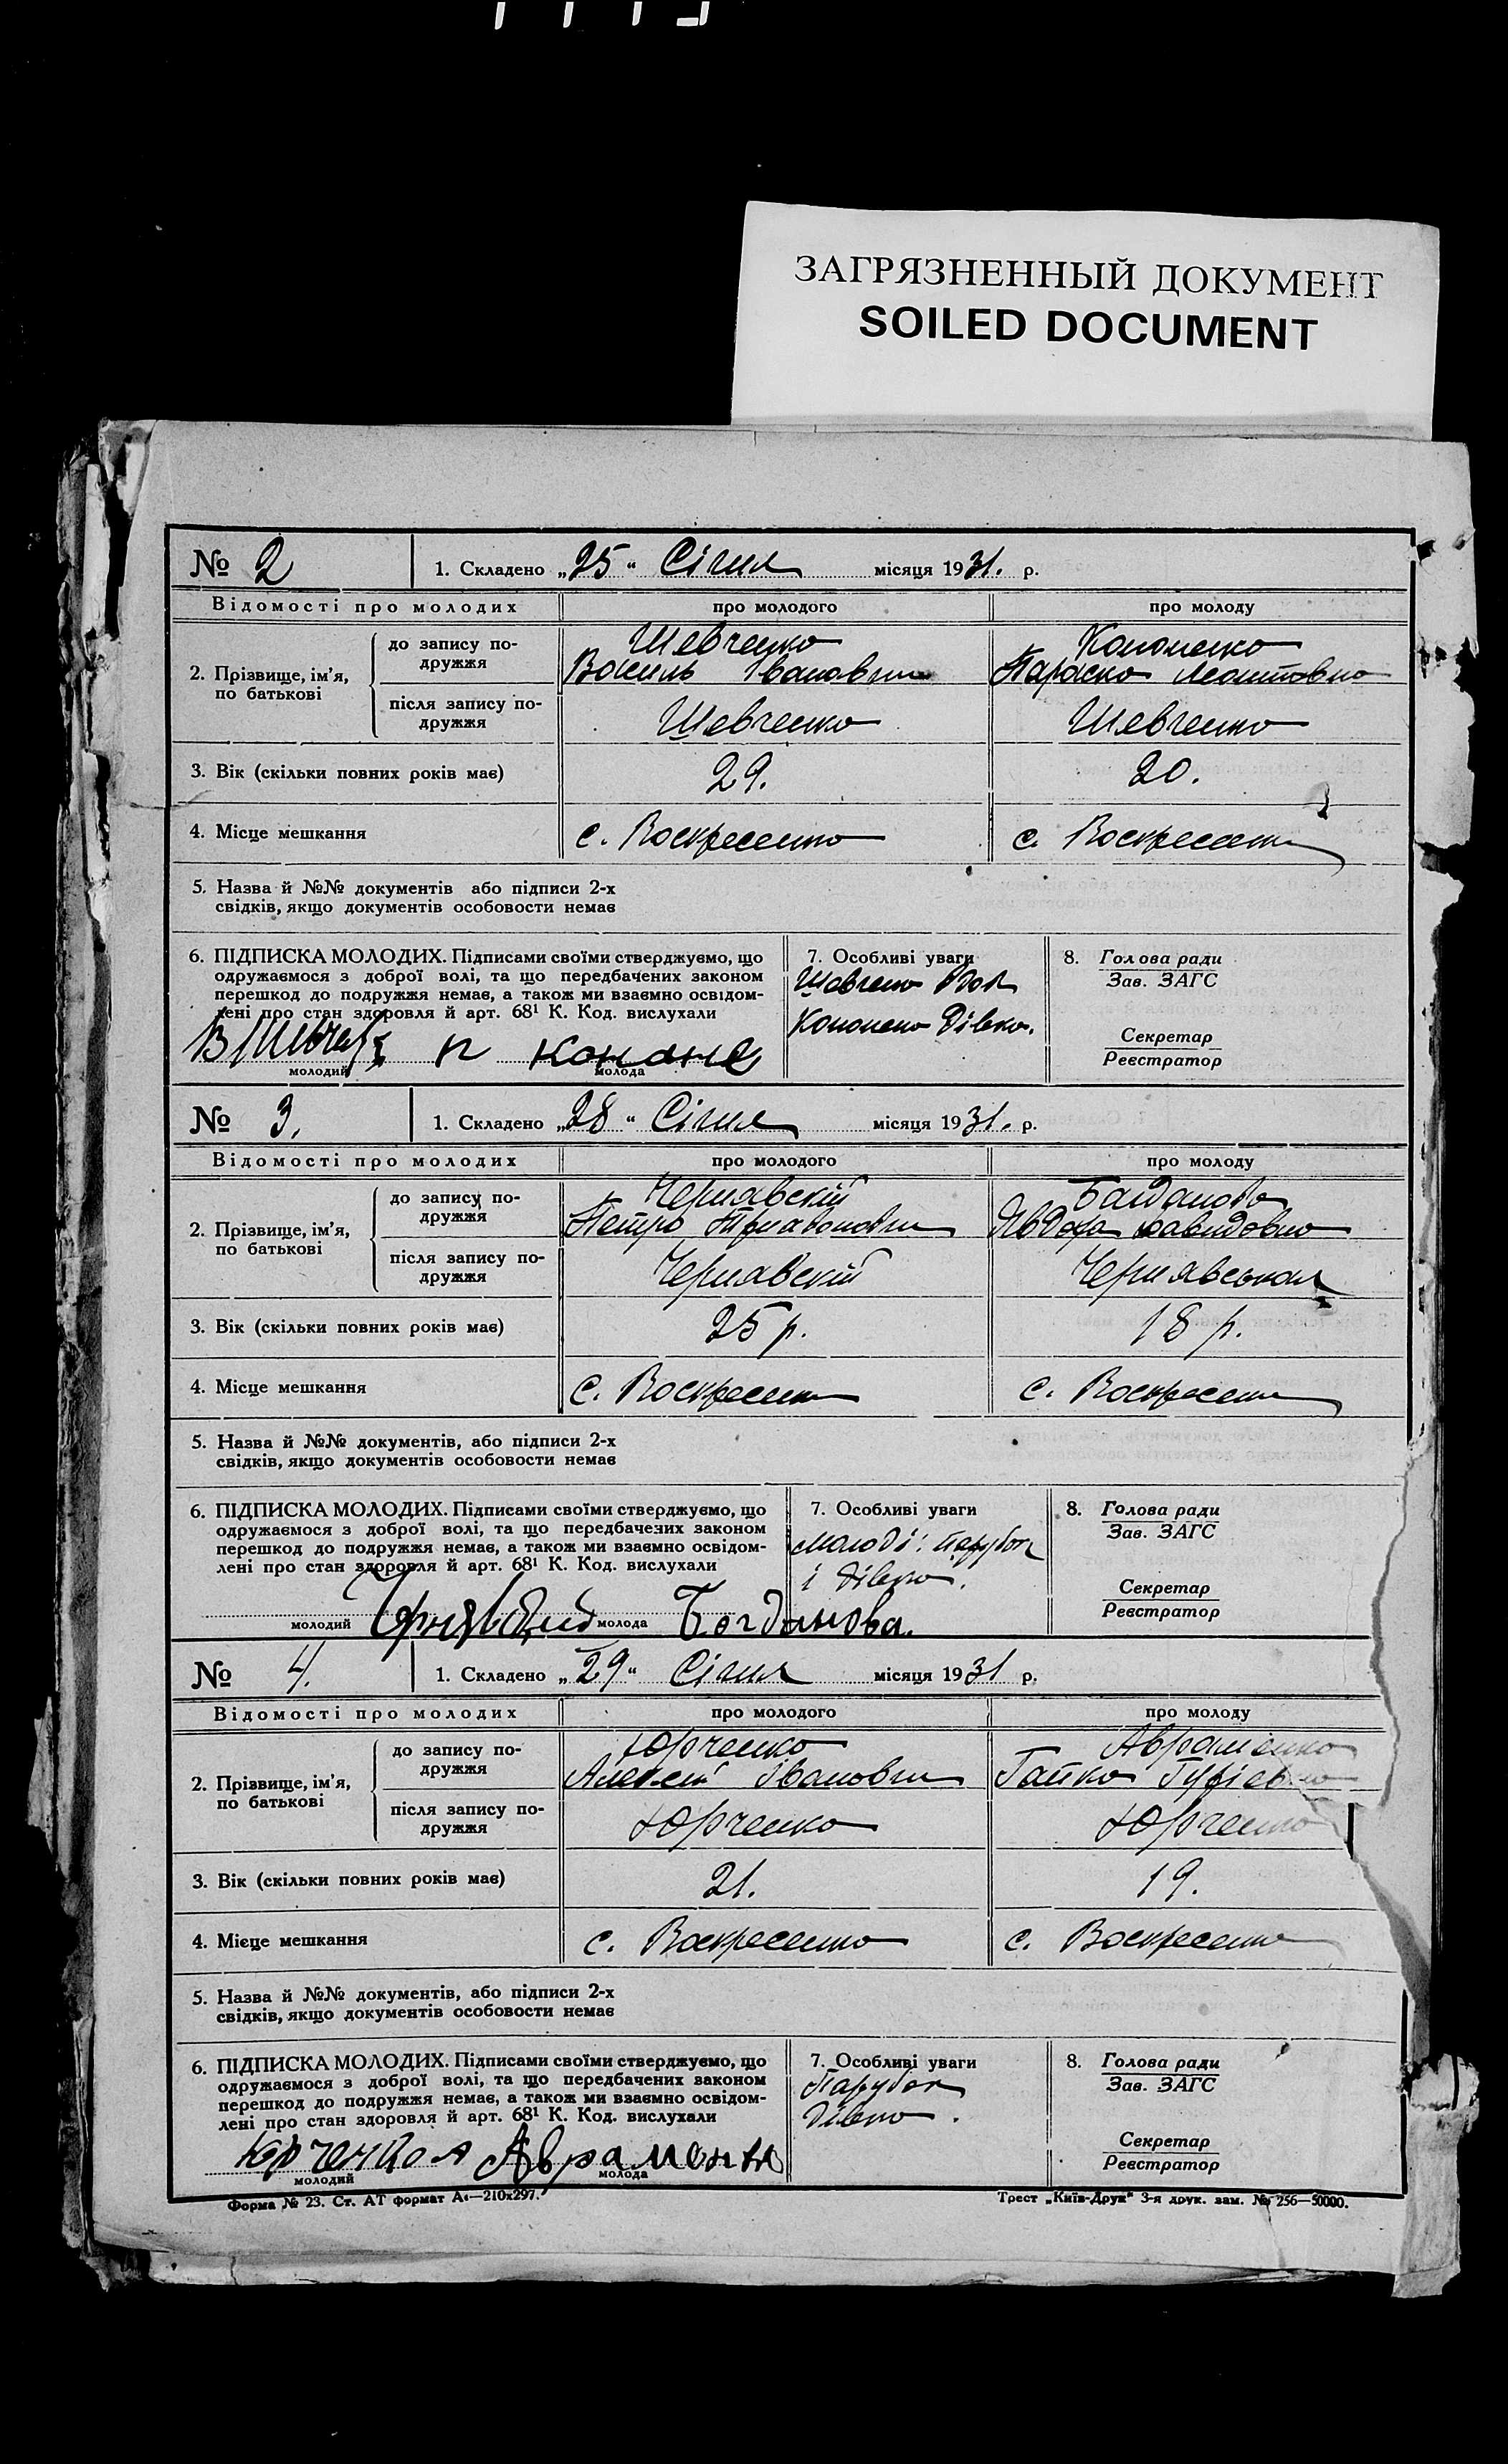 ЗАГРЯЗНЕННЫЙ ДОКУМЕНТ
SOILED DOCUMENT
№ 2 1. Складено „25“ Січня місяця 1931. р.
Відомості про молодих про молодого про молоду
2. Прізвище, ім'я, по батькові
до запису по-
дружжя
Шевченко
Василь Іванович
Кононенко
Параска
після запису по-
дружжя
Шевченко Шевченко
3. Вік (скільки повних років має) 29. 20.
4. Місце мешкання с. Воскресенка с. Воскресенка
5. Назва й №№ документів або підписи 2-х
свідків, якщо документів особовости немає
6. ПІДПИСКА МОЛОДИХ. Підписами своїми стверджуємо, що
одружаємося з доброї волі, та що передбачених законом
перешкод до подружжя немає, а також ми взаємно освідом-
лені про стан здоровля й арт. 68¹ К. Код. вислухали
молодий молода
7. Особливі уваги
Дівка.
8. Голова ради
Зав. ЗАГС
Секретар
Реєстратор
№ 3. 1. Складено „28“ Січня місяця 1931. р.
Відомості про молодих про молодого про молоду
2. Прізвище, ім'я, по батькові
до запису по-
дружжя
Чернявскій
Петро
Богданова
Явдоха Давидовна
після запису по-
дружжя
Чернявскій Чернявськая
3. Вік (скільки повних років має) 25 р. 18 р.
4. Місце мешкання с. Воскресенка с. Воскресенка
5. Назва й №№ документів, або підписи 2-х
свідків, якщо документів особовости немає
6. ПІДПИСКА МОЛОДИХ. Підписами своїми стверджуємо, що
одружаємося з доброї волі, та що передбачених законом
перешкод до подружжя немає, а також ми взаємно освідом-
лені про стан здоровля й арт. 68¹ К. Код. вислухали
молодий молода Богданова.
7. Особливі уваги
Молоді: парубок
і дівка.
8. Голова ради
Зав. ЗАГС
Секретар
Реєстратор
№ 4. 1. Складено „29“ Січня місяця 1931 р.
Відомості про молодих про молодого про молоду
2. Прізвище, ім'я, по батькові
до запису по-
дружжя
Юрченко
Алексій Іванович
Авраменко
Гапка Гурієвна
після запису по-
дружжя
Юрченко Юрченко
3. Вік (скільки повних років має) 21. 19.
4. Місце мешкання с. Воскресенка с. Воскресенка
5. Назва й №№ документів, або підписи 2-х
свідків, якщо документів особовости немає
6. ПІДПИСКА МОЛОДИХ. Підписами своїми стверджуємо, що
одружаємося з доброї волі, та що передбачених законом
перешкод до подружжя немає, а також ми взаємно освідом-
лені про стан здоровля й арт. 68¹ К. Код. вислухали
Юрченко А
молодий молода
7. Особливі уваги
Парубок
Дівка.
8. Голова ради
Зав. ЗАГС
Секретар
Реєстратор
Форма № 23. Ст. АТ формат А₄—210х297.
Трест „Київ-Друк“ 3-я друк. зам. № 256—50000.